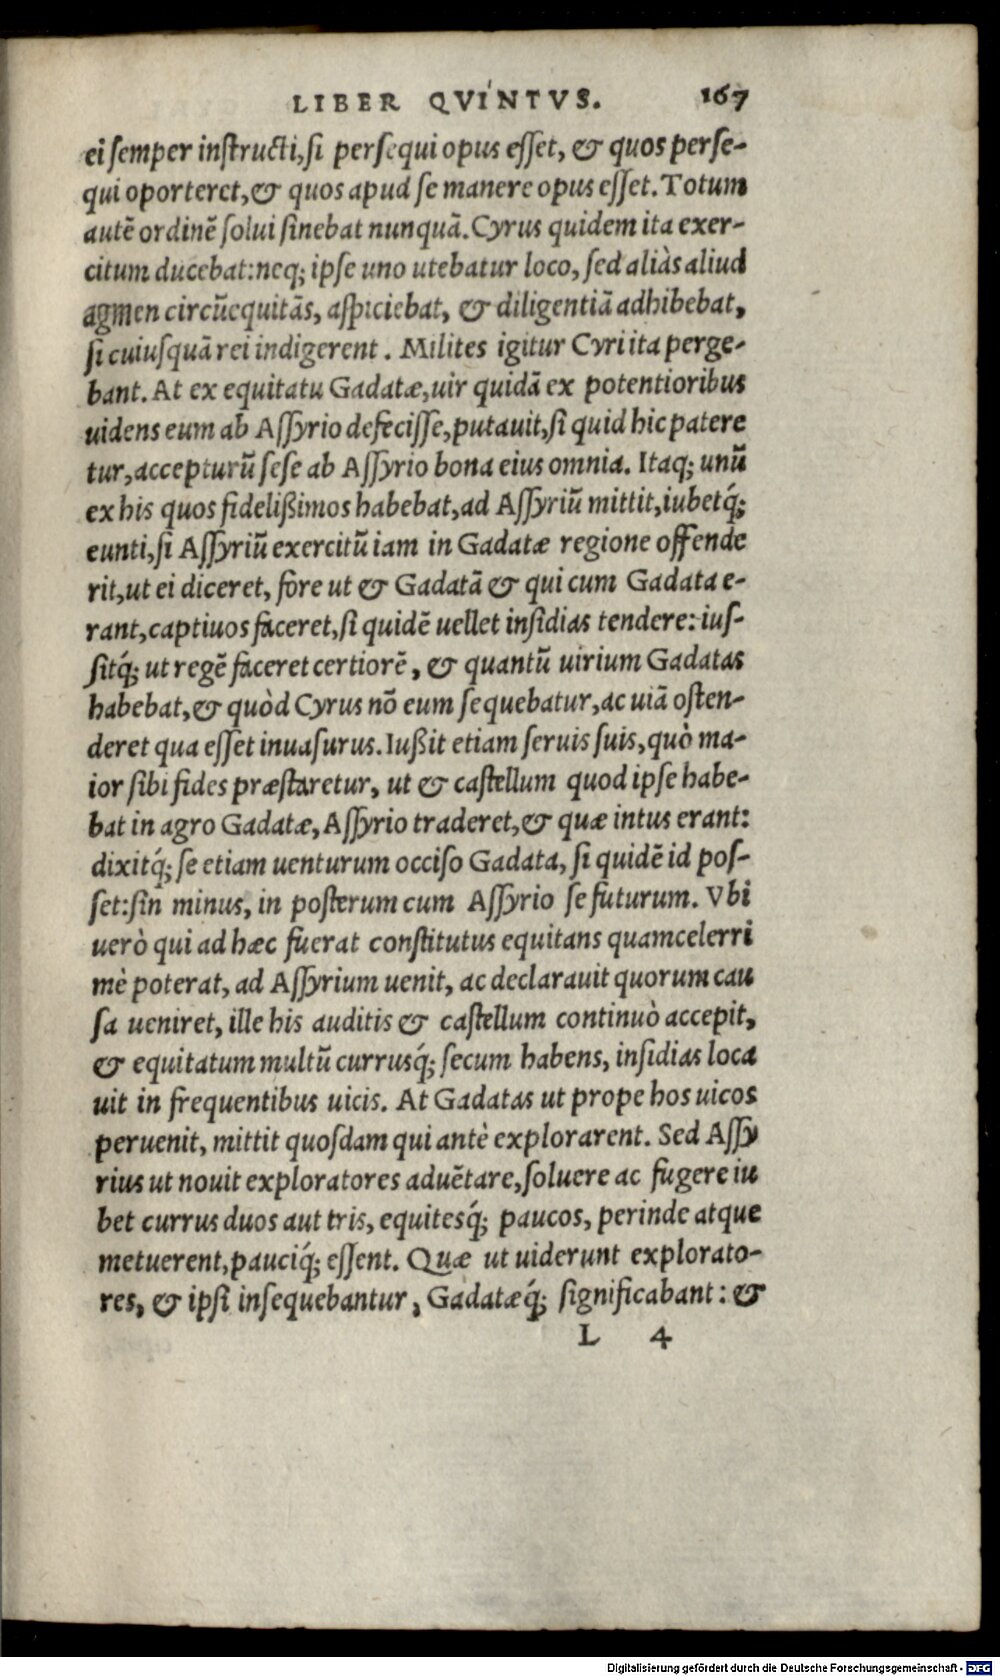 LIBER QVINTVS. 167
ei semper instructi, si persequi opus esset, & quos perse-
qui oporteret, & quos apud se manere opus esset. Totum
autē ordinē solui sinebat nunquā. Cyrus quidem ita exer-
citum ducebat: neq; ipse uno utebatur loco, sed aliàs aliud
agmen circūequitās, aspiciebat, & diligentiā adhibebat,
si cuiusquā rei indigerent. Milites igitur Cyri ita perge-
bant. At ex equitatu Gadatæ, uir quidā ex potentioribus
uidens eum ab Assyrio defecisse, putauit, si quid hic patere
tur, accepturū sese ab Assyrio bona eius omnia. Itaq; unū
ex his quos fidelißimos habebat, ad Assyriū mittit, iubetq́;
eunti, si Assyriū exercitū iam in Gadatæ regione offende
rit, ut ei diceret, fore ut & Gadatā & qui cum Gadata e-
rant, captiuos faceret, si quidē uellet insidias tendere: ius-
sitq́; ut regē faceret certiorē, & quantū uirium Gadatas
habebat, & quòd Cyrus nō eum sequebatur, ac uiā osten-
deret qua esset inuasurus. Iußit etiam seruis suis, quò ma-
ior sibi fides præstaretur, ut & castellum quod ipse habe-
bat in agro Gadatæ, Assyrio traderet, & quæ intus erant:
dixitq́; se etiam uenturum occiso Gadata, si quidē id pos-
set: sin minus, in posterum cum Assyrio se futurum. Vbi
uerò qui ad hæc fuerat constitutus equitans quamcelerri
mè poterat, ad Assyrium uenit, ac declarauit quorum cau
sa ueniret, ille his auditis & castellum continuò accepit,
& equitatum multū currusq́; secum habens, insidias loca
uit in frequentibus uicis. At Gadatas ut prope hos uicos
peruenit, mittit quosdam qui antè explorarent. Sed Assy
rius ut nouit exploratores aduētare, soluere ac fugere iu
bet currus duos aut tris, equitesq́; paucos, perinde atque
metuerent, pauciq́; essent. Quæ ut uiderunt explorato-
res, & ipsi insequebantur, Gadatæq́; significabant: &
L 4
Digitalisierung gefördert durch die Deutsche Forschungsgemeinschaft - DFG